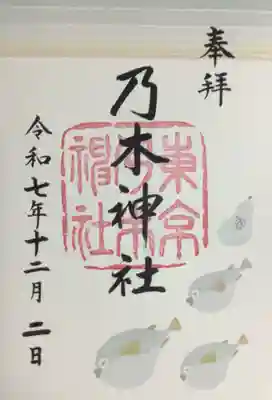 奉拝
乃木神社
東京乃木神社
令和七年十二月二日